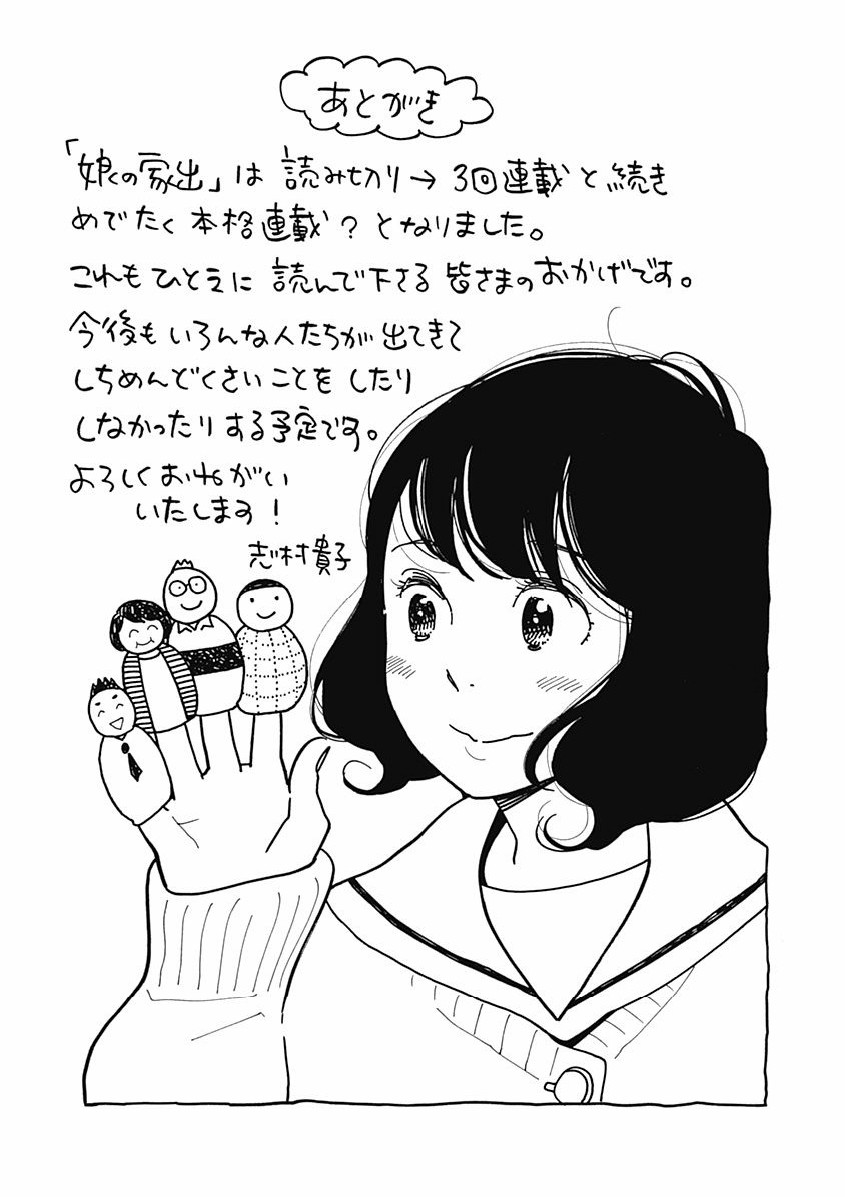 あとがき
「娘の家出」は 読み切り→3回連載と続き
めでたく本格連載?となりました。
これもひとえに 読んで下さる 皆さまのおかげです。
今後もいろんな人たちが出てきて
しちめんどくさいことをしたり
しなかったりする予定です。
よろしくおねがい
いたします!
志村貴子